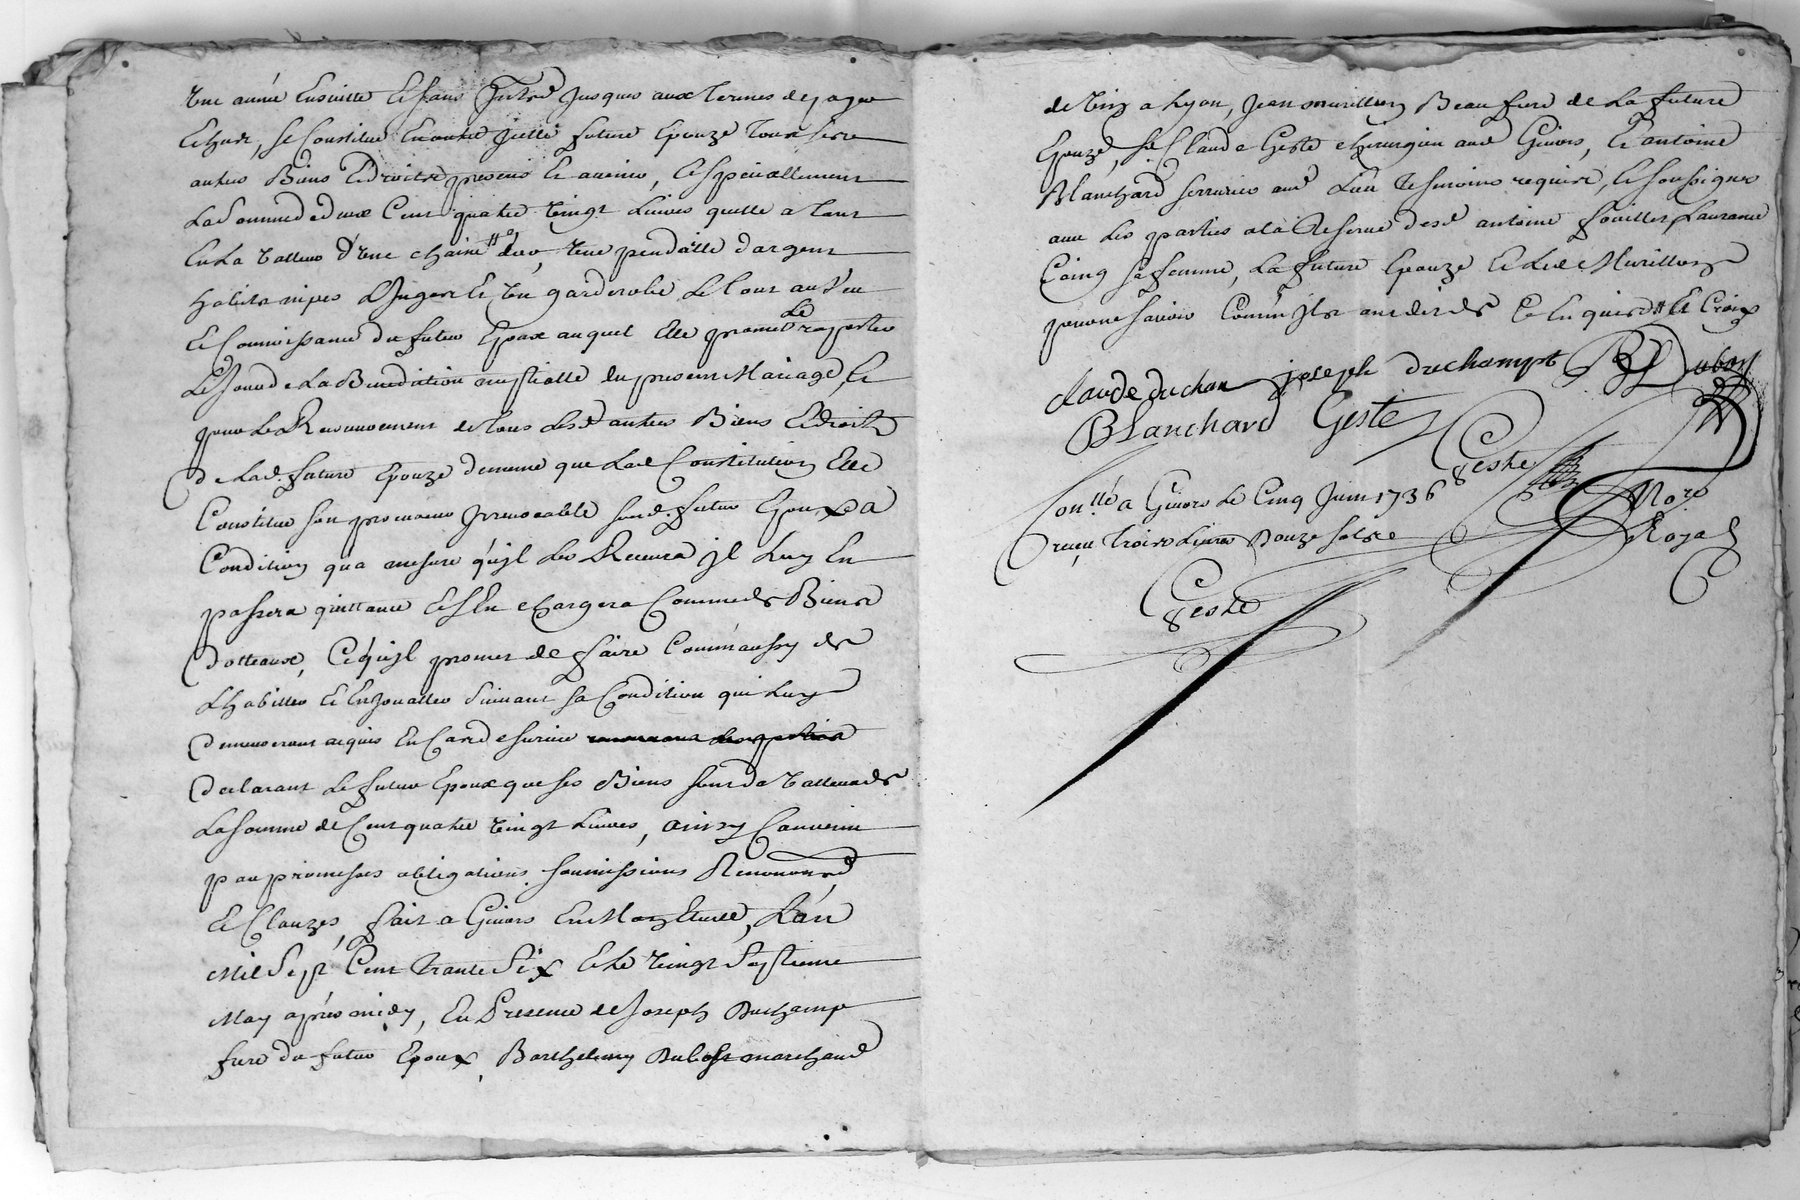 Une année Ensuitte Et sans Interest Jusques aux termes de payer
Echus, Se Constitue Encorre Jcelle future Epouze tous Ses
autres Biens Et droits presens Et avenirs, Et speciallement
La Somme de deux Cent quatre Vingt Livres quelle a tant
En La Valleur d'Une chaine d'or, Une pendaille d'argent
habits nipes Linges Et Un garderobe Le tout au Veu
Et Connoissance du futur Epoux auquel Elle promet Le rapporter
Le Jour de La Benediction nuptialle du present Mariage, Et
pour Le Recouvrement de tous Lesd autres Biens Et droits
de Lad. future Epouze de meme que Lad Constitution Elle
Constitue son procureur Jrrevocable sond. futur Epoux a
Condition qu'a mesure qu'jl Les Recevra jl Luy En
passera quittance Et S'En chargera Comme de Biens
dotteaux, Ce qu'jl promet de faire Comm'aussy de
L'habiller Et Enjoualler Suivant Sa Condition qui Luy
demeureront acquis En Cas de survie
declarant Le futur Epoux que ses Biens sont de Valleur de
La somme de Cent quatre Vingt Livres, ainsy Convenu
par promesses obligations soumissions Renonons
Et Clauzes, fait a Givors En Mon Etude, L'an
Mil Sept Cent Trante Six Et Le Vingt Septieme
May apres midy, En Presence de Joseph Duchamp
frere du futur Epoux, Barthelemy Dubost marchand
de a Lyon, Jean murillon Beaufrere de La future
Epouze, Sr Claude Geste chirurgien aud Givors, Et antoine
Blanchard serrurier aud Lieu Tesmoins requis, Et soussignes
avec Les parties a la Reserve desd antoine Laurance
Coing sa femme, La future Epouze Et Led Murillon
pour ne savoir Comm Jls ont dit de Ce Enquis
claude duchan joseph duchampt B Dubost
Blanchard Geste
Geste
Con.llé a Givors Le Cinq Juin 1736
reçu Trois Livres Douze sols
Geste
Nore
Royal